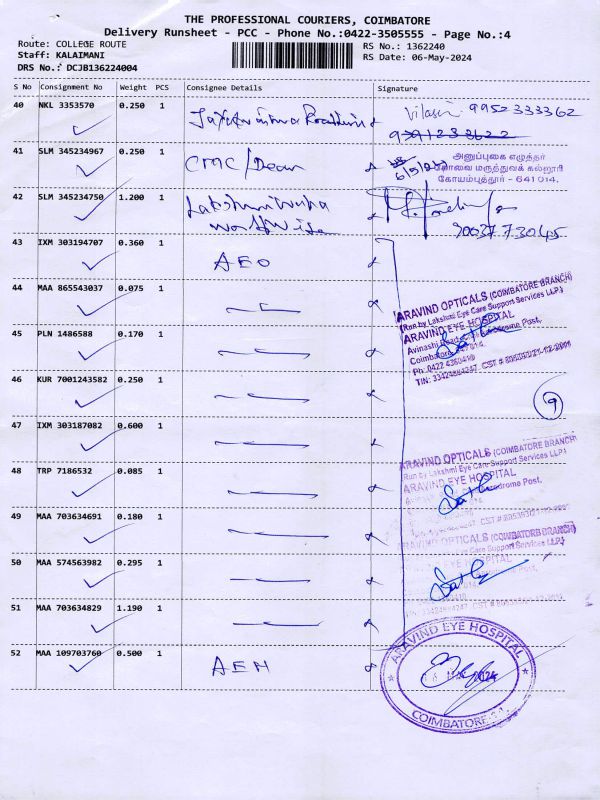 THE PROFESSIONAL COURIERS, COIMBATORE
Delivery Runsheet - PCC - Phone No.:0422-3505555 - Page No.:4
Route: COLLEGE ROUTE
Staff: KALAIMANI
DRS No.: DCJB136224004
RS No.: 1362240
RS Date: 06-May-2024
S No Consignment No Weight PCS Consignee Details Signature
40 NKL 3353570 0.250 1 9952333362
41 SLM 345234967 0.250 1 CMC/Dean
அனுப்புகை எழுத்தர்
கோவை மருத்துவக் கல்லூரி
கோயம்புத்தூர் - 641 014.
42 SLM 345234750 1.200 1
43 IXM 303194707 0.360 1 AEO
44 MAA 865543037 0.075 1
ARAVIND OPTICALS (COIMBATORE BRANCH)
(Run by Lakshmi Eye Care Support Services LLP)
ARAVIND EYE HOSPITAL
45 PLN 1486588 0.170 1
46 KUR 7001243582 0.250 1
9
47 IXM 303187082 0.600 1
ARAVIND OPTICALS (COIMBATORE BRANCH)
(Run by Lakshmi Eye Care Support Services LLP)
ARAVIND EYE HOSPITAL
48 TRP 7186532 0.085 1
49 MAA 703634691 0.180 1
ARAVIND OPTICALS (COIMBATORE BRANCH)
50 MAA 574563982 0.295 1
51 MAA 703634829 1.190 1
52 MAA 109703760 0.500 1 AEH
ARAVIND EYE HOSPITAL
COIMBATORE-14